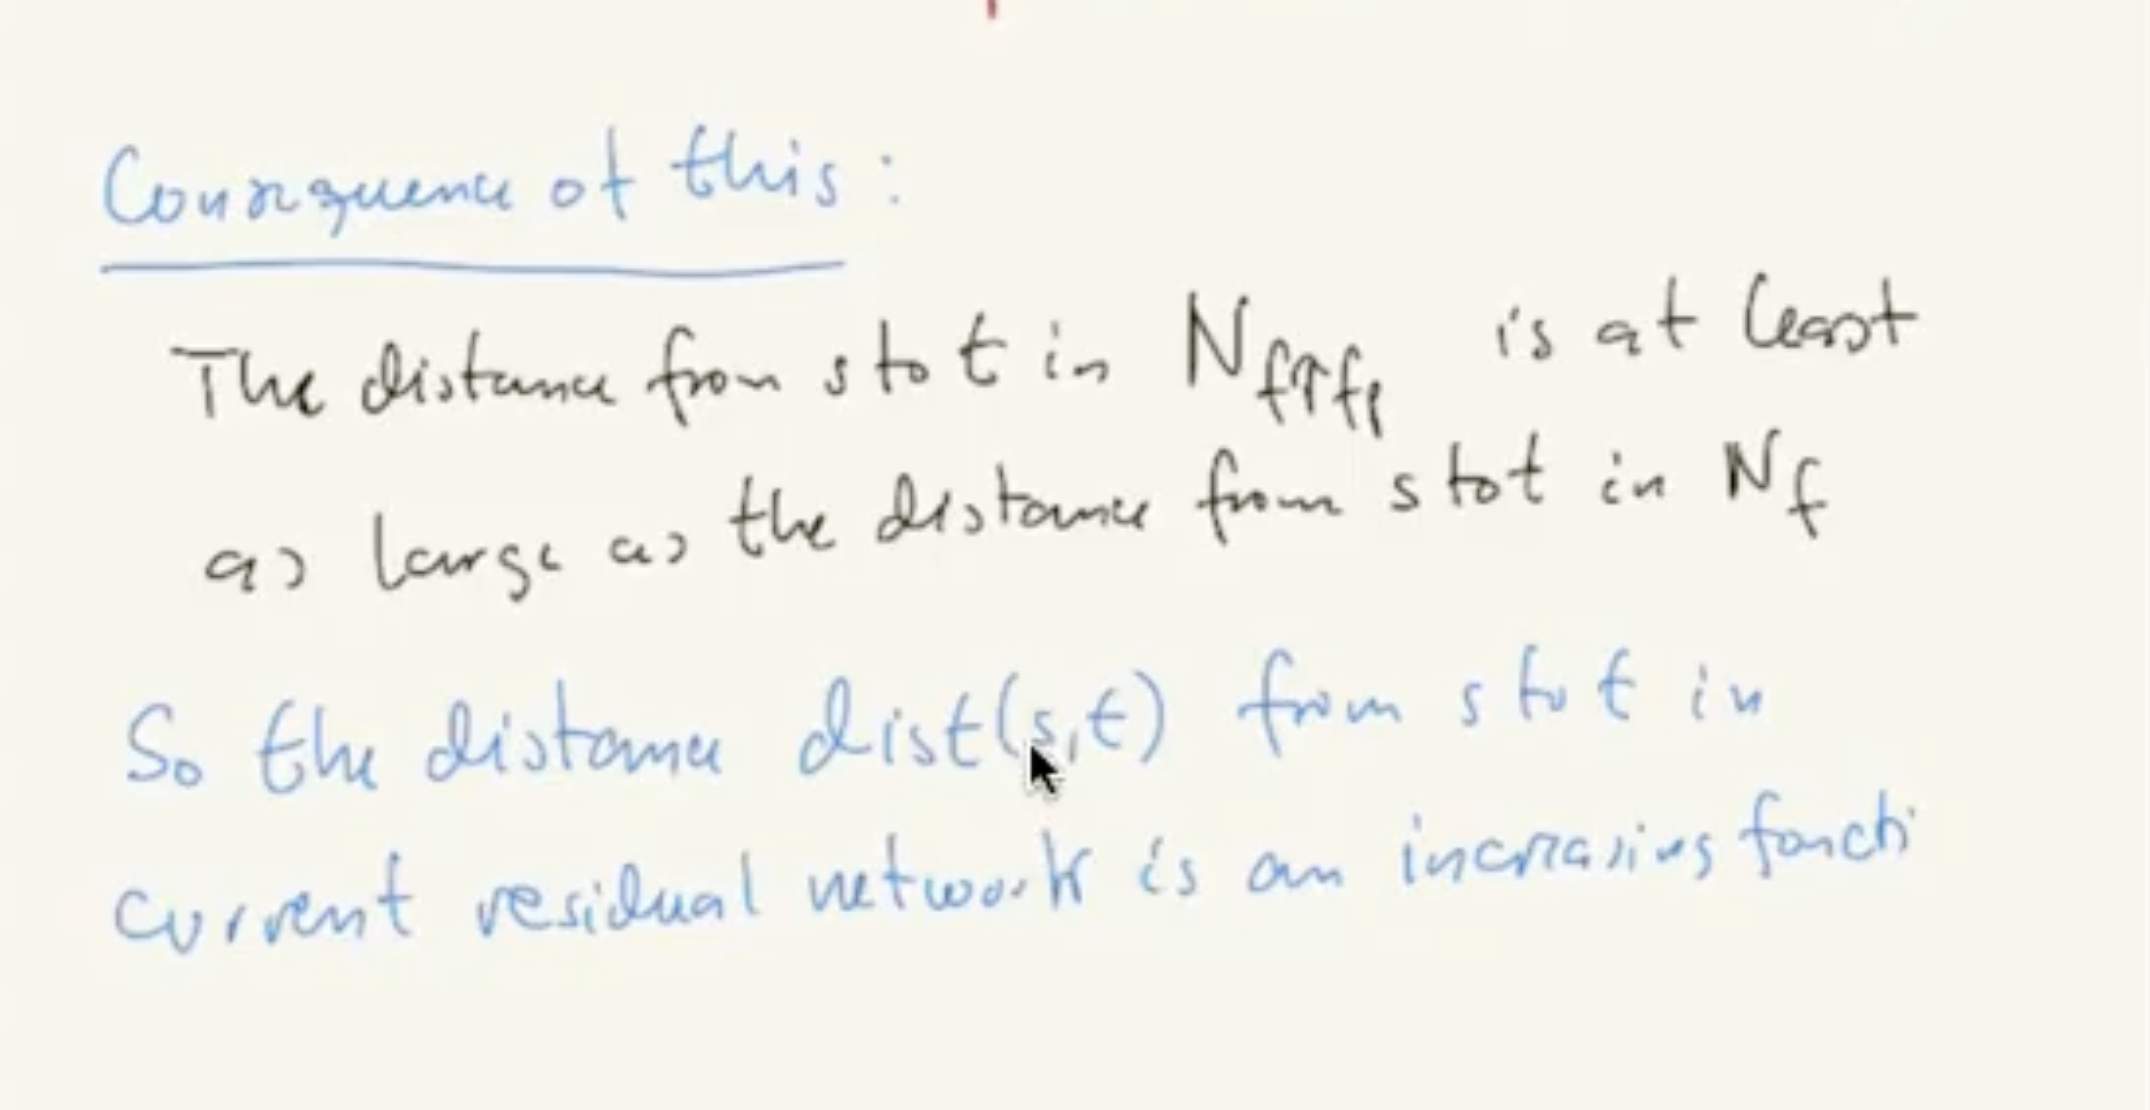 Consequence of this:
The distance from s to t in N_{f↑f_p} is at least
as large as the distance from s to t in N_f
So the distance dist(s,t) from s to t in
current residual network is an increasing functi